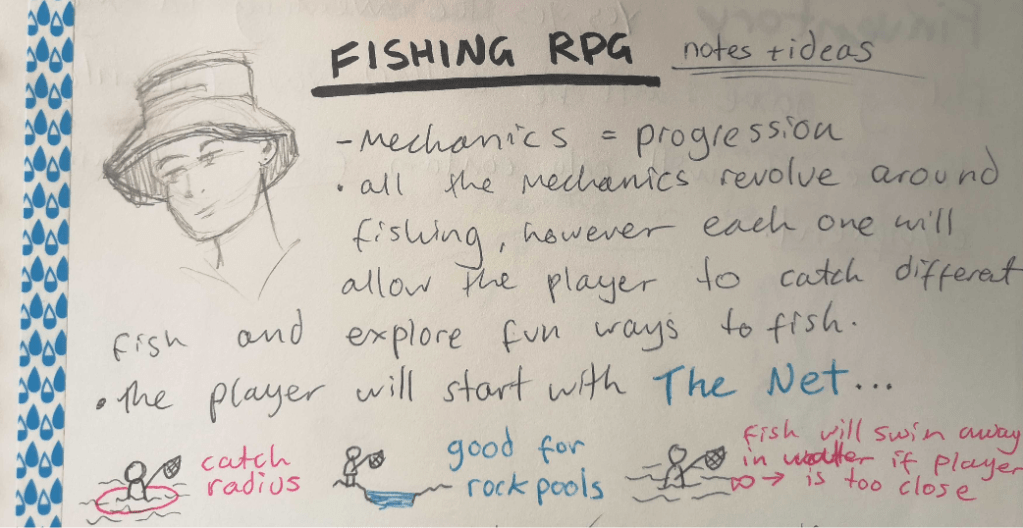 FISHING RPG notes + ideas
- Mechanics = progression
• all the mechanics revolve around
fishing, however each one will
allow the player to catch different
fish and explore fun ways to fish.
• the player will start with The Net...
catch
radius
good for
rock pools
fish will swim away
in water if player
→ is too close